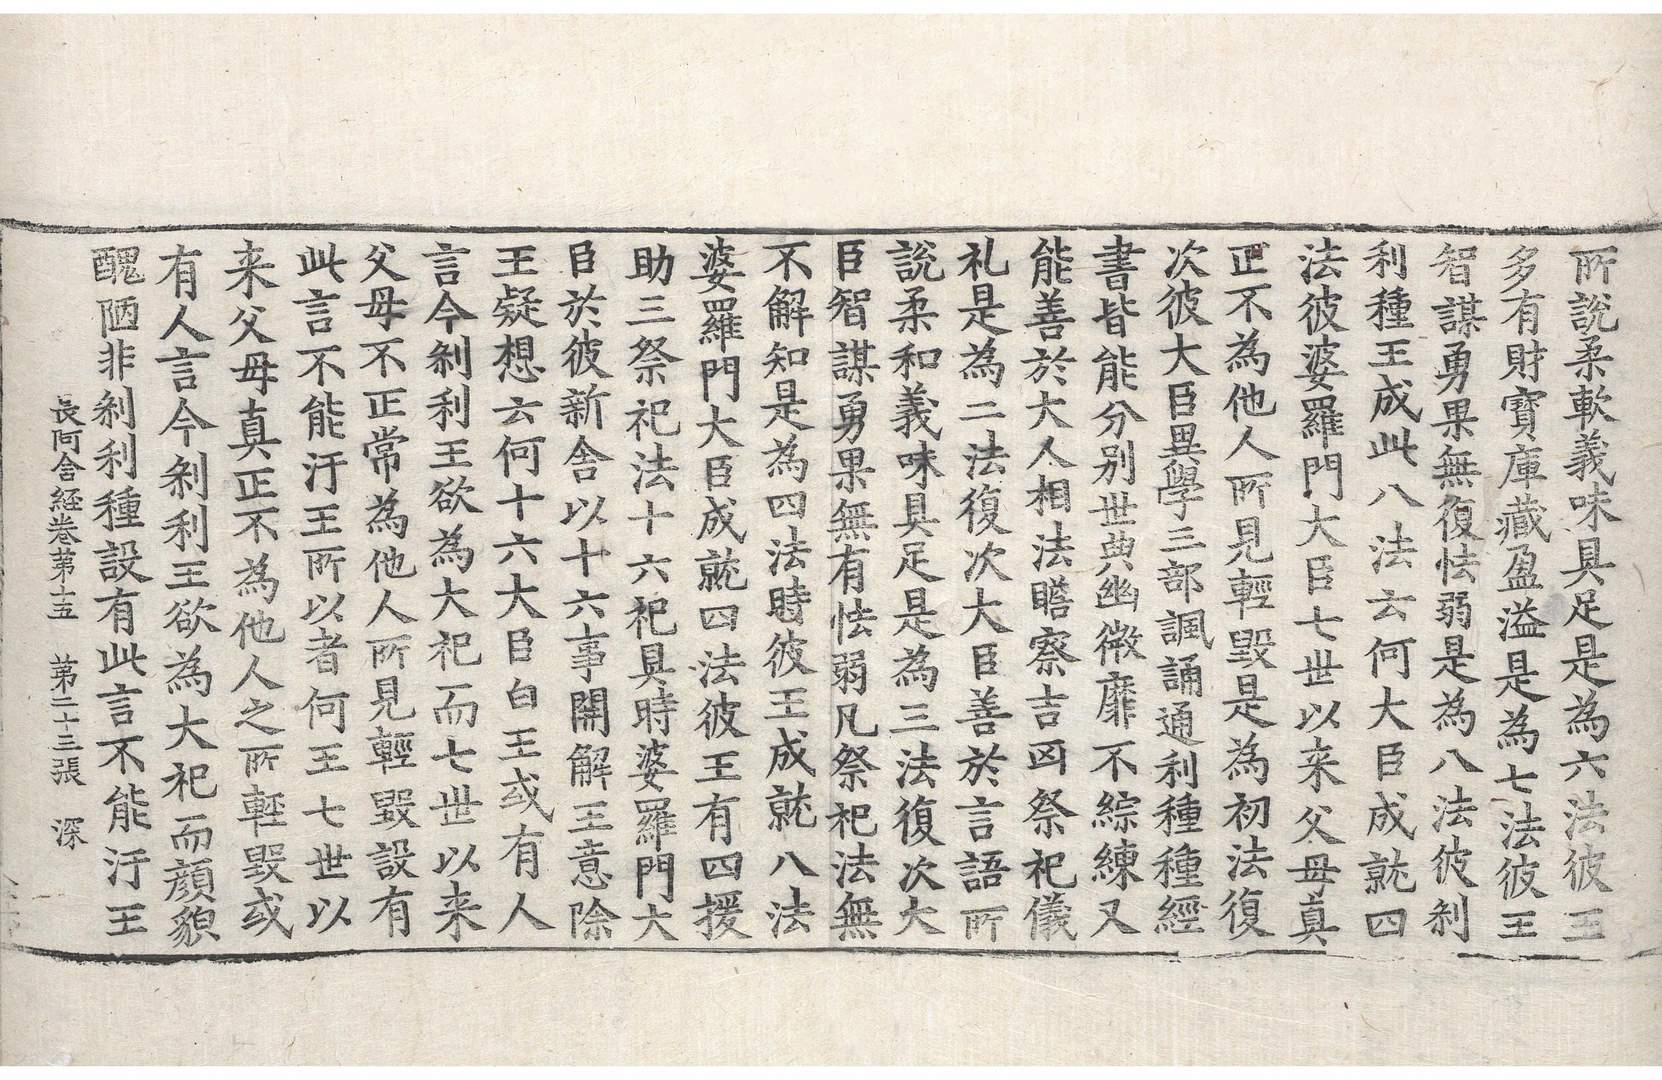 所說柔軟義味具足是為六法彼王
多有財寶庫藏盈溢是為七法彼王
智謀勇果無復怯弱是為八法彼剎
利種王成此八法云何大臣成就四
法彼婆羅門大臣七世以来父母真
正不為他人所見輕毀是為初法復
次彼大臣異學三部諷誦通利種種經
書皆能分別世典幽微靡不綜練又
能善於大人相法瞻察吉凶祭祀儀
礼是為二法復次大臣善於言語所
說柔和義味具足是為三法復次大
臣智謀勇果無有怯弱凡祭祀法無
不解知是為四法時彼王成就八法
婆羅門大臣成就四法彼王有四援
助三祭祀法十六祀具時婆羅門大
臣於彼新舍以十六事開解王意除
王疑想云何十六大臣白王或有人
言今剎利王欲為大祀而七世以来
父母不正常為他人所見輕毀設有
此言不能汙王所以者何王七世以
来父母真正不為他人之所輕毀或
有人言今剎利王欲為大祀而顏貌
醜陋非剎利種設有此言不能汙王
長阿含經卷第十五 第二十三張 深